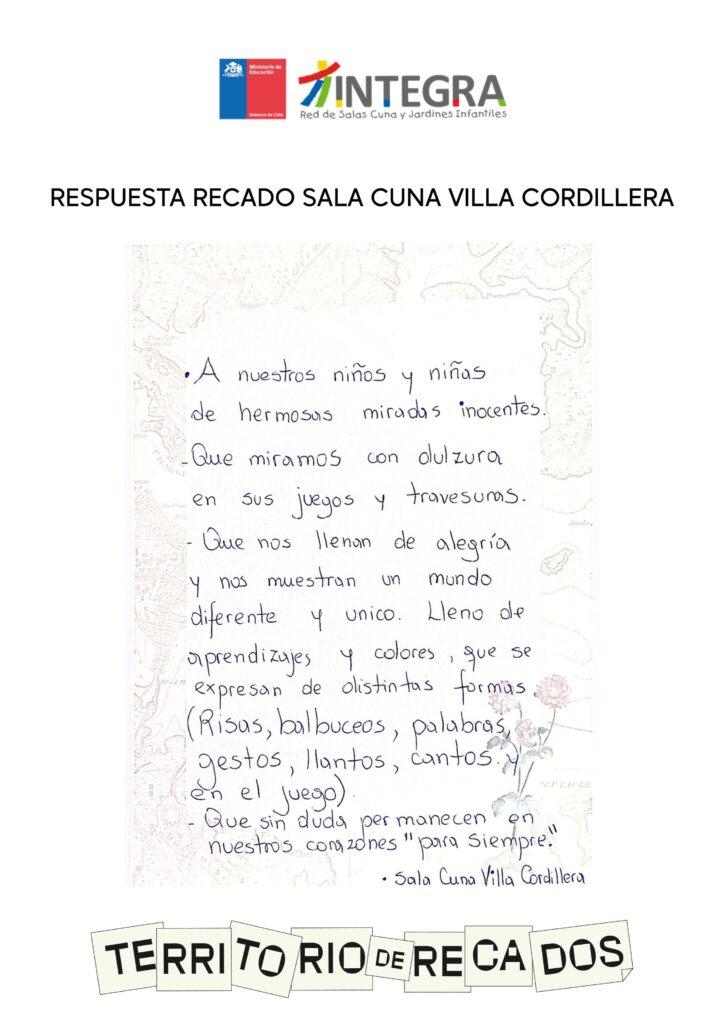 Ministerio de
Educación
Gobierno de Chile
INTEGRA
Red de Salas Cuna y Jardines Infantiles
RESPUESTA RECADO SALA CUNA VILLA CORDILLERA
• A nuestros niños y niñas
de hermosas miradas inocentes.
- Que miramos con dulzura
en sus juegos y travesuras.
- Que nos llenan de alegría
y nos muestran un mundo
diferente y unico. Lleno de
aprendizajes y colores, que se
expresan de distintas formas
(Risas, balbuceos, palabras,
gestos, llantos, cantos. y
en el juego).
- Que sin duda permanecen en
nuestros corazones "para siempre."
• Sala Cuna Villa Cordillera
TERRITORIO DE RECADOS